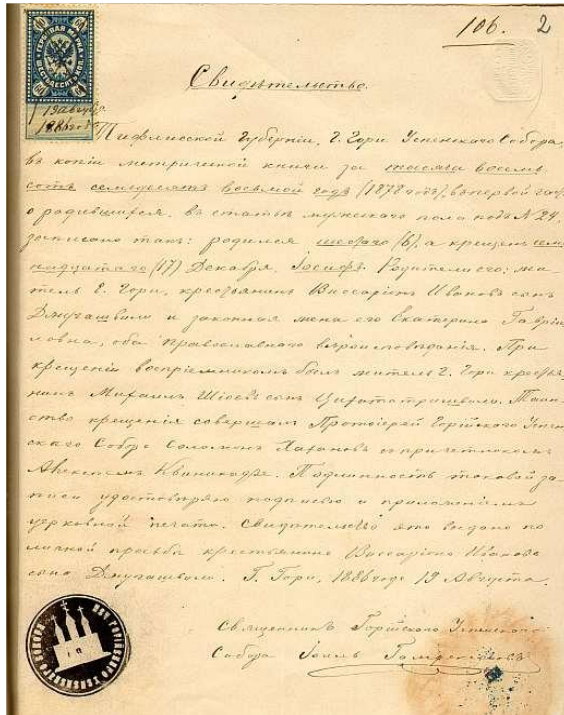 106. 2
ГЕРБОВАЯ МАРКА
60 60
19 Августа
1886 года
Свидѣтельство.
Тифлисской Губерніи, Г. Гори Успенскаго Собора,
въ копіи метрической книги за тысяча восемь
сотъ семьдесятъ восьмой годъ (1878 годъ), въ первой части
о родившихся, въ статьѣ мужескаго пола подъ № 24,
записано такъ: родился шестаго (6), а крещенъ сем-
надцатаго (17) Декабря, Іосифъ. Родители его: жи-
тель Г. Гори, крестьянинъ Виссаріонъ Ивановъ сынъ
Джугашвили и законная жена его Екатерина Гаврі-
ловна, оба православнаго вѣроисповѣданія. При
крещеніи воспріемникомъ былъ житель Г. Гори крестья-
нинъ Михаилъ сынъ Цихататришвили. Таин-
ство крещенія совершалъ Протоіерей Горійскаго Успен-
скаго Собора Хахановъ съ причетникомъ
Квиникадзе. Подлинность таковой за-
писи удостовѣряю подписью и приложеніемъ
церковной печати. Свидѣтельство это выдано по
личной просьбѣ крестьянина Виссаріона Иванова
сына Джугашвили. Г. Гори, 1886 года 19 Августа.
Священникъ Горійскаго Успенскаго
Собора